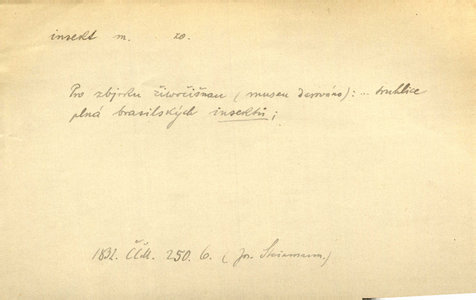 insekt m. zo.
Pro zbjrku žiwočišnau (museu darowáno): .. truhlice
plná brasilských insektů;
1832. ČČM. 250. 6. (Jos.